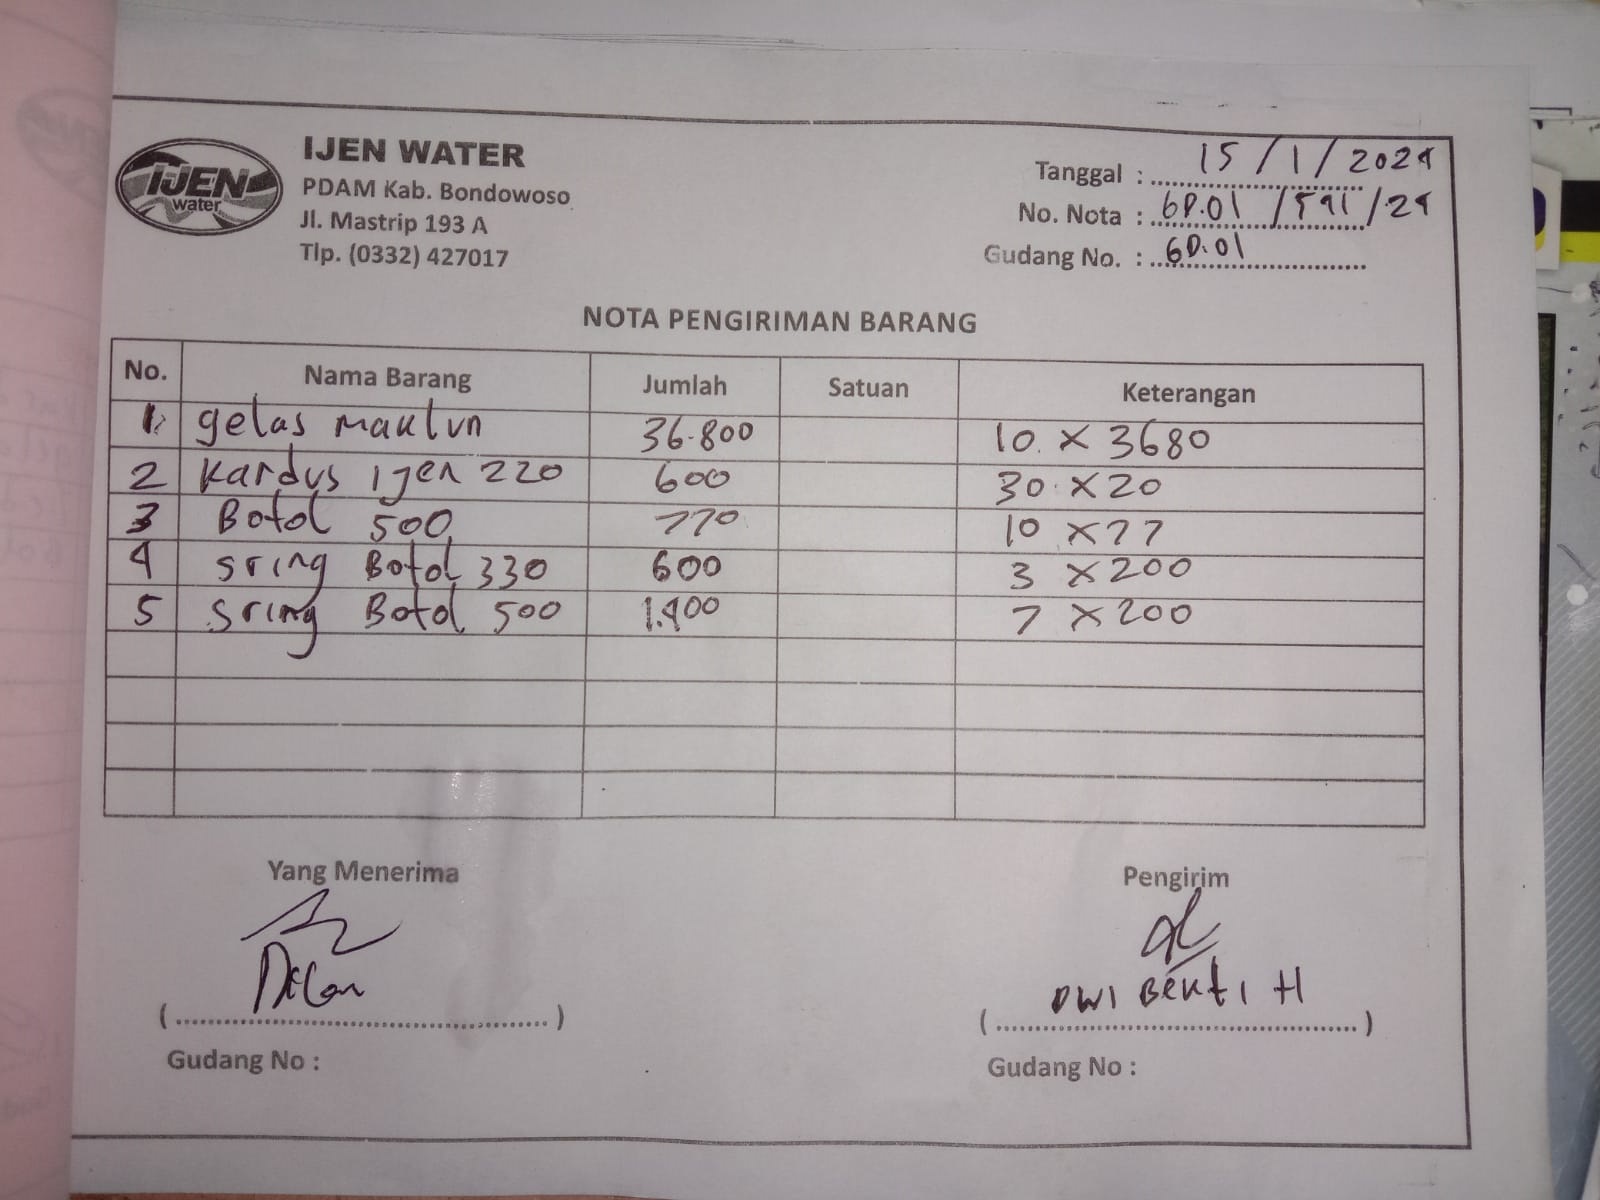 IJEN
water
IJEN WATER
PDAM Kab. Bondowoso
Jl. Mastrip 193 A
Tlp. (0332) 427017
Tanggal : 15 / 1 / 2024
No. Nota : GD.01 /541 /24
Gudang No. : GD.01
NOTA PENGIRIMAN BARANG
No. Nama Barang Jumlah Satuan Keterangan
1. gelas Maklun 36.800 10 x 3680
2 Kardus Ijen 220 600 30 x 20
3 Botol 500 770 10 x 77
4 sring Botol 330 600 3 x 200
5 sring Botol 500 1.400 7 x 200
Yang Menerima Pengirim
Dilan DWI BEKTI H
Gudang No : Gudang No :